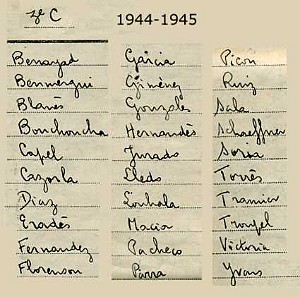 2e C
1944-1945
Benayad
Benmergui
Blanes
Bouchoucha
Capel
Cazorla
Diaz
Eradès
Fernandez
Florenson
Garcia
Gimènez
Gonzalez
Hernandès
Jurado
Lledo
Macia
Pacheco
Parra
Picon
Ruiz
Sala
Schaeffner
Soria
Torrès
Tramier
Troujel
Victoria
Yvars